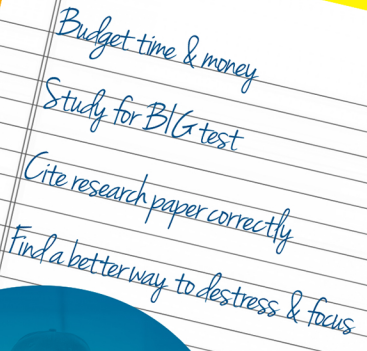 Budget time & money
Study for BIG test
Cite research paper correctly
Find a better way to destress & focus